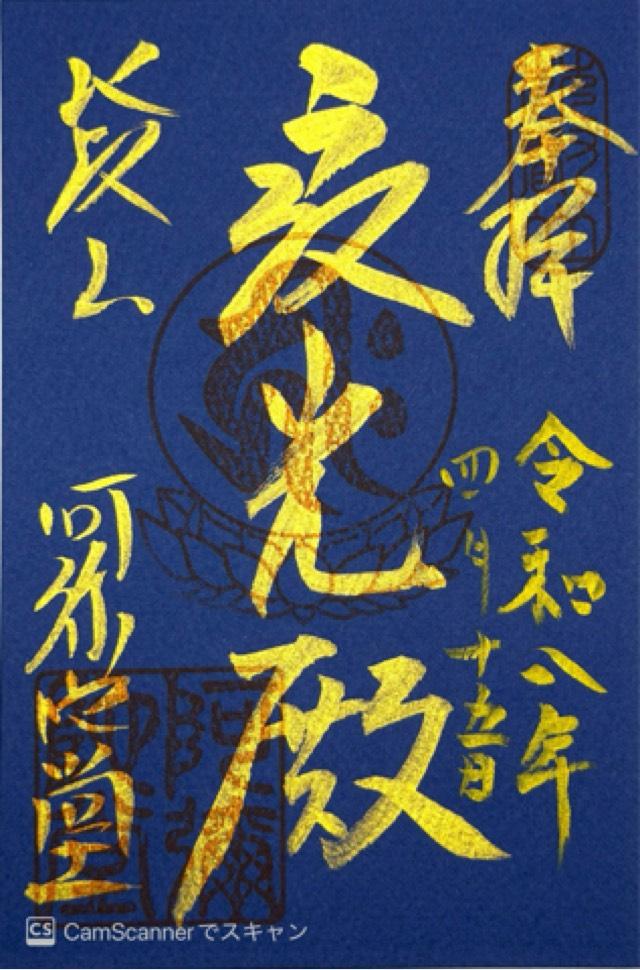 奉拝
令和八年
四月十五日
光殿
山
阿弥陀堂
CS CamScannerでスキャン